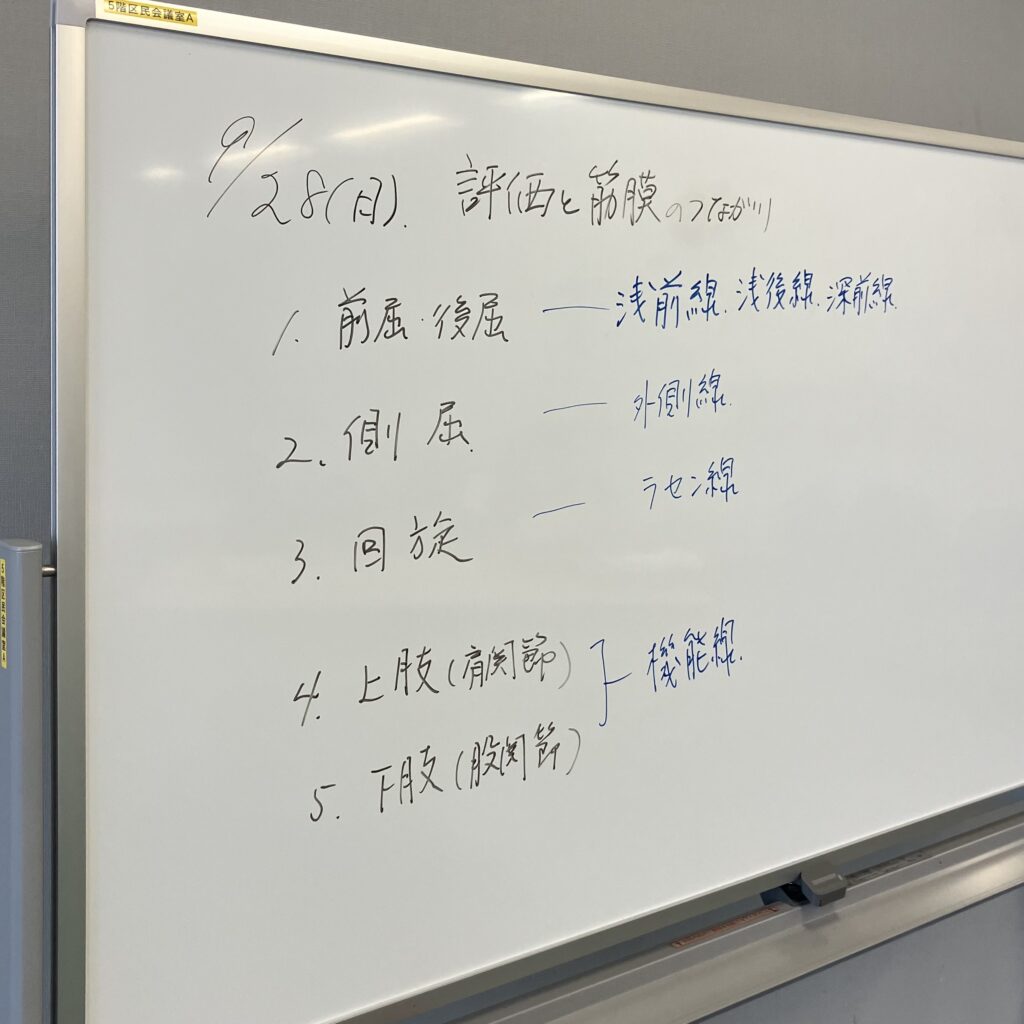 5階区民会議室A
9/28(日). 評価と筋膜のつながり
1. 前屈・後屈 — 浅前線. 浅後線. 深前線.
2. 側屈. — 外側線.
3. 回旋 — ラセン線
4. 上肢(肩関節)
機能線.
5. 下肢(股関節)
5階区民会議室A